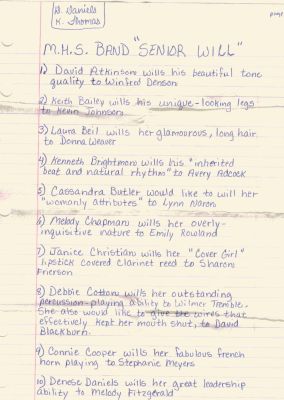 D. Daniels
K. Thomas
page
M.H.S. BAND "SENIOR WILL"
1) David Atkinson wills his beautiful tone
quality to Winfred Denson
2) Keith Bailey wills his unique-looking legs
to Kevin Johnson
3) Laura Beil wills her glamourous, long hair
to Donna Weaver
4) Kenneth Brightmon wills his "inherited
beat and natural rhythm" to Avery Adcock
5) Cassandra Butler would like to will her
"womanly attributes" to Lynn Naron
6) Melody Chapman wills her overly-
inquisitive nature to Emily Rowland
7) Janice Christian wills her "Cover Girl"
lipstick covered clarinet reed to Sharon
Frierson
8) Debbie Cotton wills her outstanding
percussion-playing ability to Wilmer Tremble.
She also would like to give the wires that
effectively kept her mouth shut, to David
Blackburn.
9) Connie Cooper wills her fabulous french
horn playing to Stephanie Meyers
10) Denese Daniels wills her great leadership
ability to Melody Fitzgerald